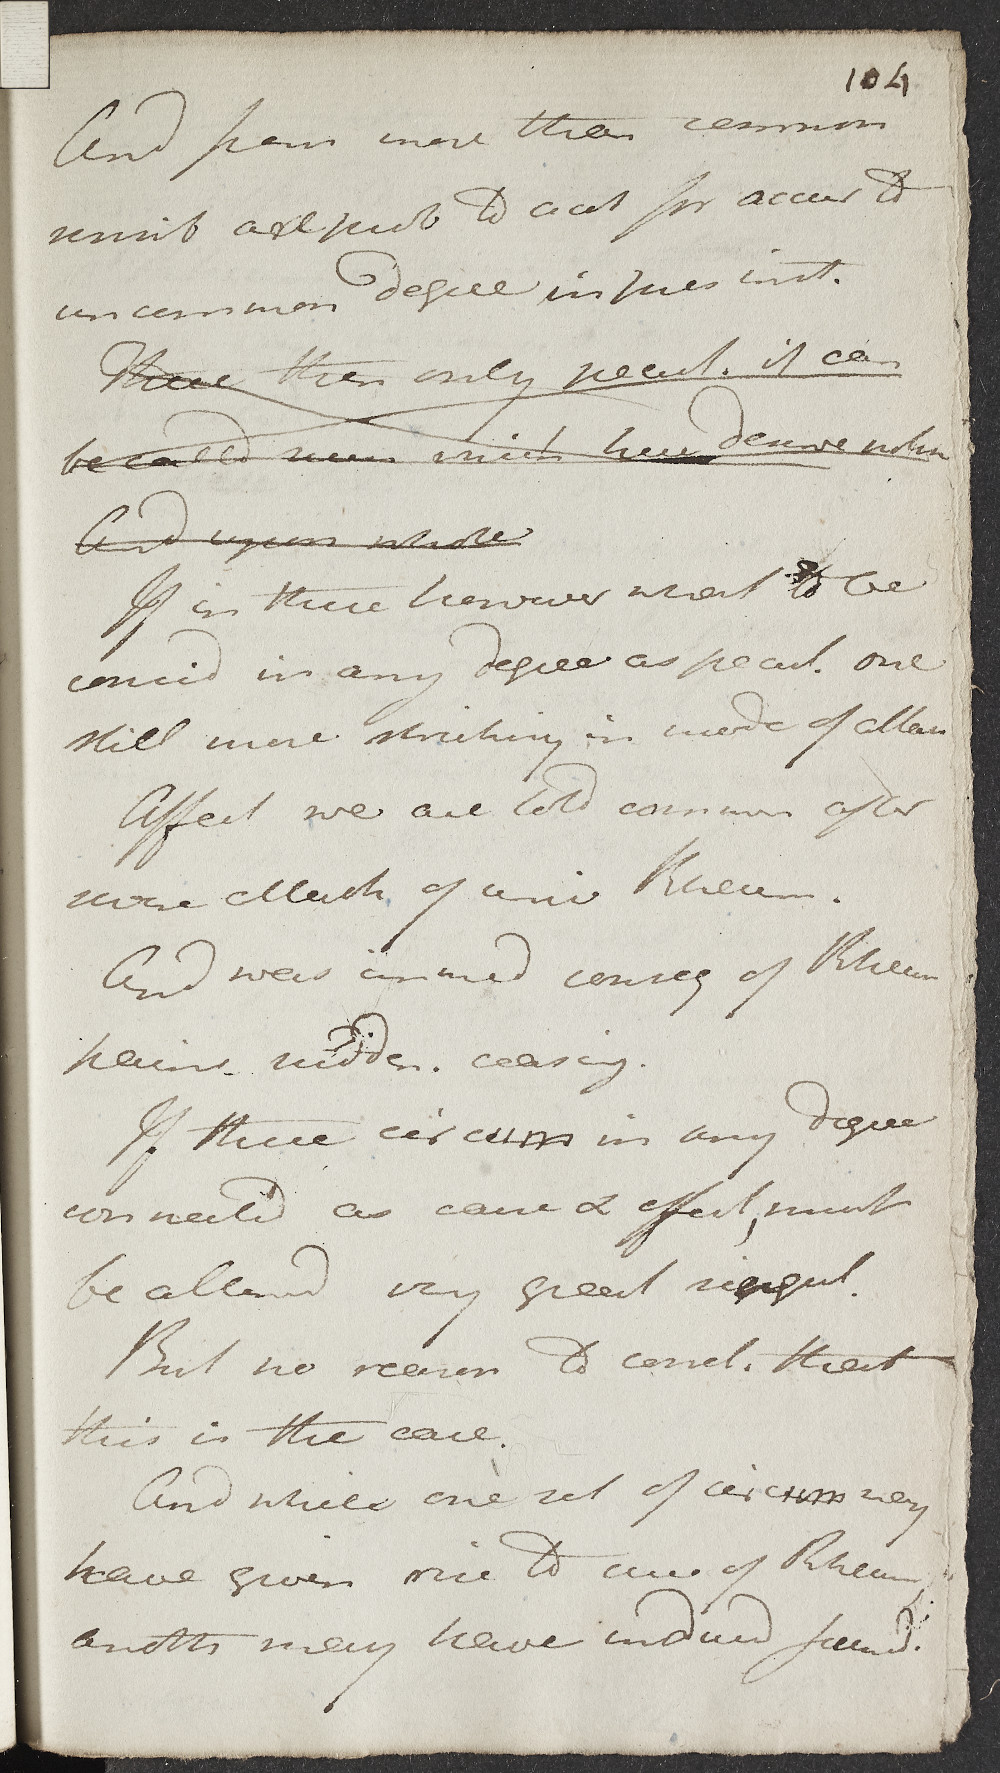 104
And from more than common
sensib
uncommon degree in pres inst.
These then only pecul. it can
be called much here deserve
And upon whole
If in there however what to be
consid in any degree as pecul. one
still more striking in mode of attack
Affect we are told common after
severe attack of univ Rheum.
And was immed conseq of Rheum
pains sudden. ceasing.
If these circum in any degree
connected as cause & effect, must
be allowd very great singul.
But no reason to concl. that
this is the case.
And while one set of circum may
have given rise to cure of Rheum,
another may have induced jaund.